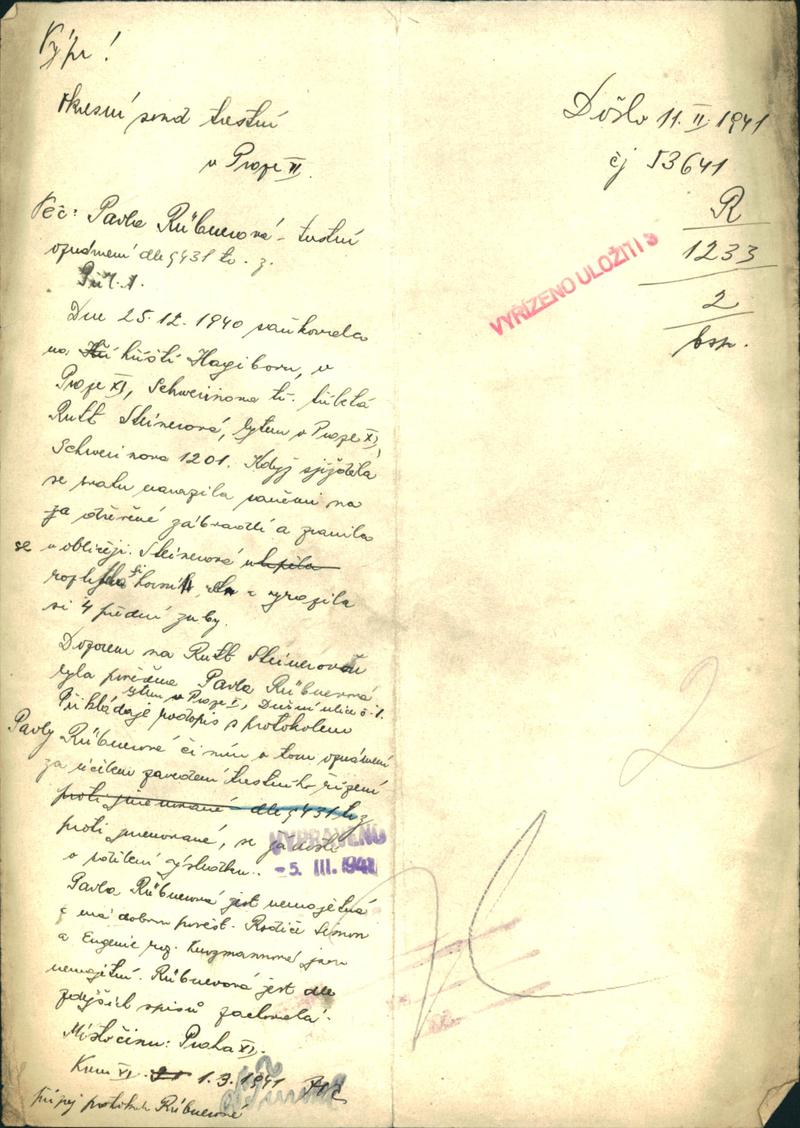 Výpr!
Okresní soud trestní
v Praze XI.
Věc: Pavla Rübnerová - trestní
oznámení dle § 431 tr. z.
Příl. 1.
Dne 25.12. 1940 sáňkovala
na hřišti Hagibor, v
Praze XI, Schwerinova tř.
Ruth Steinerová, bytem v Praze XI,
Schwerinova 1201. Když sjížděla
se svahu narazila saněmi na
zábradlí a zranila
se v obličeji. Steinerová utrpěla
rozbila si horní a vyrazila
si 4 přední zuby.
Dozorem na Ruth Steinerovou
byla pověřena Pavla Rübnerová
bytem v Praze I, Dušní ulice č. 1.
Přikládaje rodopis s protokolem
Pavly Rübnerové činím o tom oznámení
za účelem zavedení trestního řízení
proti jmenované dle § 431 tr z
proti jmenované, se žádostí
o sdělení výsledku.
VYPRAVENO
-5. III. 1941
Pavla Rübnerová jest nemajetná
a má dobrou pověst. Rodiče Simon
a Eugenie roz. Kurzmannová jsou
nemajetní. Rübnerová jest dle
zdejších spisů zachovalá.
Místo činu: Praha XI.
Krim XI. 1.3.1941
připoj protokol Rübnerové
Došlo 11. II. 1941
čj 53641
R
1233
2
bsp.
VYŘÍZENO ULOŽITI
2